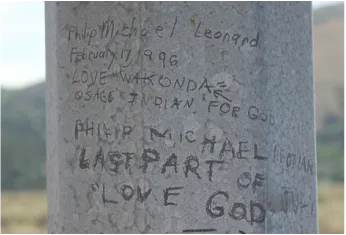 Philip Michael Leonard
February 17, 1996
"LOVE "WAKONDA"
OSAGE INDIAN FOR GOD
PHILIP MICHAEL
LAST PART OF
"LOVE GOD